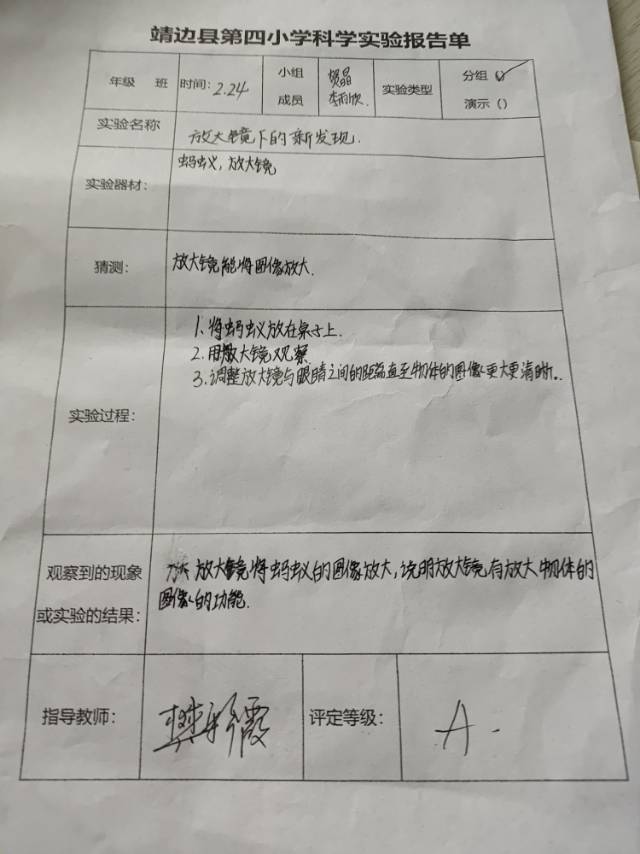 靖边县第四小学科学实验报告单
年级 班 时间：2.24 小组成员 贺晶 李雨欣 实验类型 分组（✓） 演示（）
实验名称 放大镜下的新发现.
实验器材： 蚂蚁，放大镜
猜测： 放大镜能将图像放大.
实验过程： 1.将蚂蚁放在桌子上.
2.用放大镜观察
3.调整放大镜与眼睛之间的距离直至物体的图像更大更清晰..
观察到的现象 放大镜将蚂蚁的图像放大，说明放大镜有放大物体的
或实验的结果： 图像的功能.
指导教师： 评定等级： A.